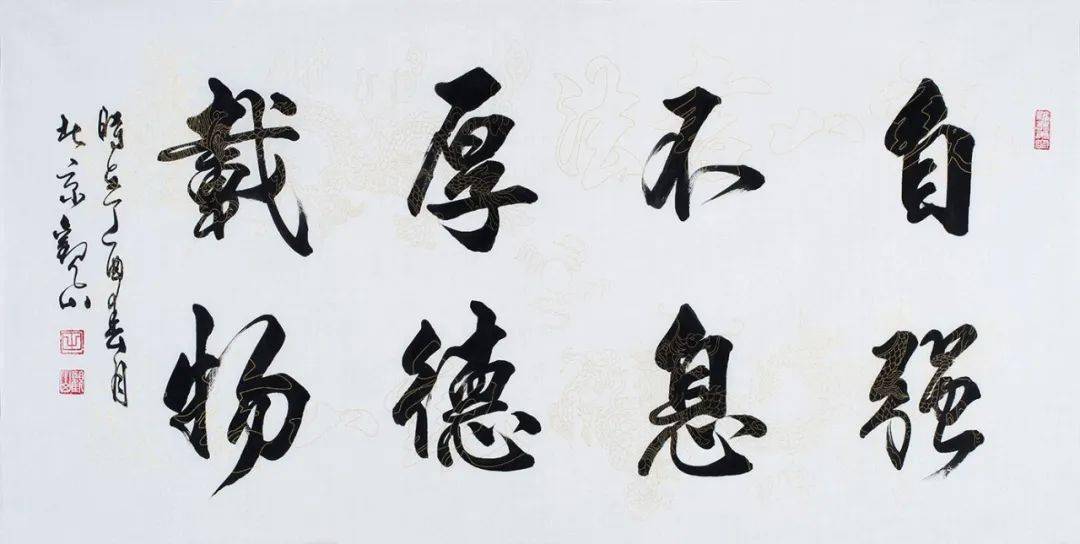 自强
不息
厚德
载物
時在丁酉春月
北京觀山